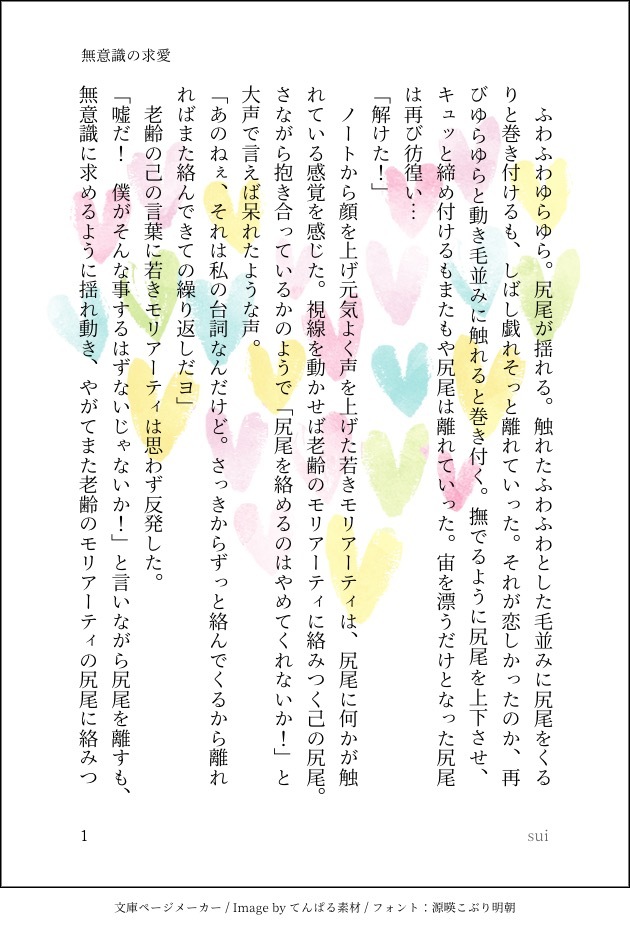 無意識の求愛
　ふわふわゆらゆら。尻尾が揺れる。触れたふわふわとした毛並みに尻尾をくる
りと巻き付けるも、しばし戯れそっと離れていった。それが恋しかったのか、再
びゆらゆらと動き毛並みに触れると巻き付く。撫でるように尻尾を上下させ、
キュッと締め付けるもまたもや尻尾は離れていった。宙を漂うだけとなった尻尾
は再び彷徨い…
「解けた！」
　ノートから顔を上げ元気よく声を上げた若きモリアーティは、尻尾に何かが触
れている感覚を感じた。視線を動かせば老齢のモリアーティに絡みつく己の尻尾。
さながら抱き合っているかのようで「尻尾を絡めるのはやめてくれないか！」と
大声で言えば呆れたような声。
「あのねぇ、それは私の台詞なんだけど。さっきからずっと絡んでくるから離れ
ればまた絡んできての繰り返しだヨ」
　老齢の己の言葉に若きモリアーティは思わず反発した。
「嘘だ！　僕がそんな事するはずないじゃないか！」と言いながら尻尾を離すも、
無意識に求めるように揺れ動き、やがてまた老齢のモリアーティの尻尾に絡みつ
1
sui
文庫ページメーカー / Image by てんぱる素材 / フォント：源暎こぶり明朝